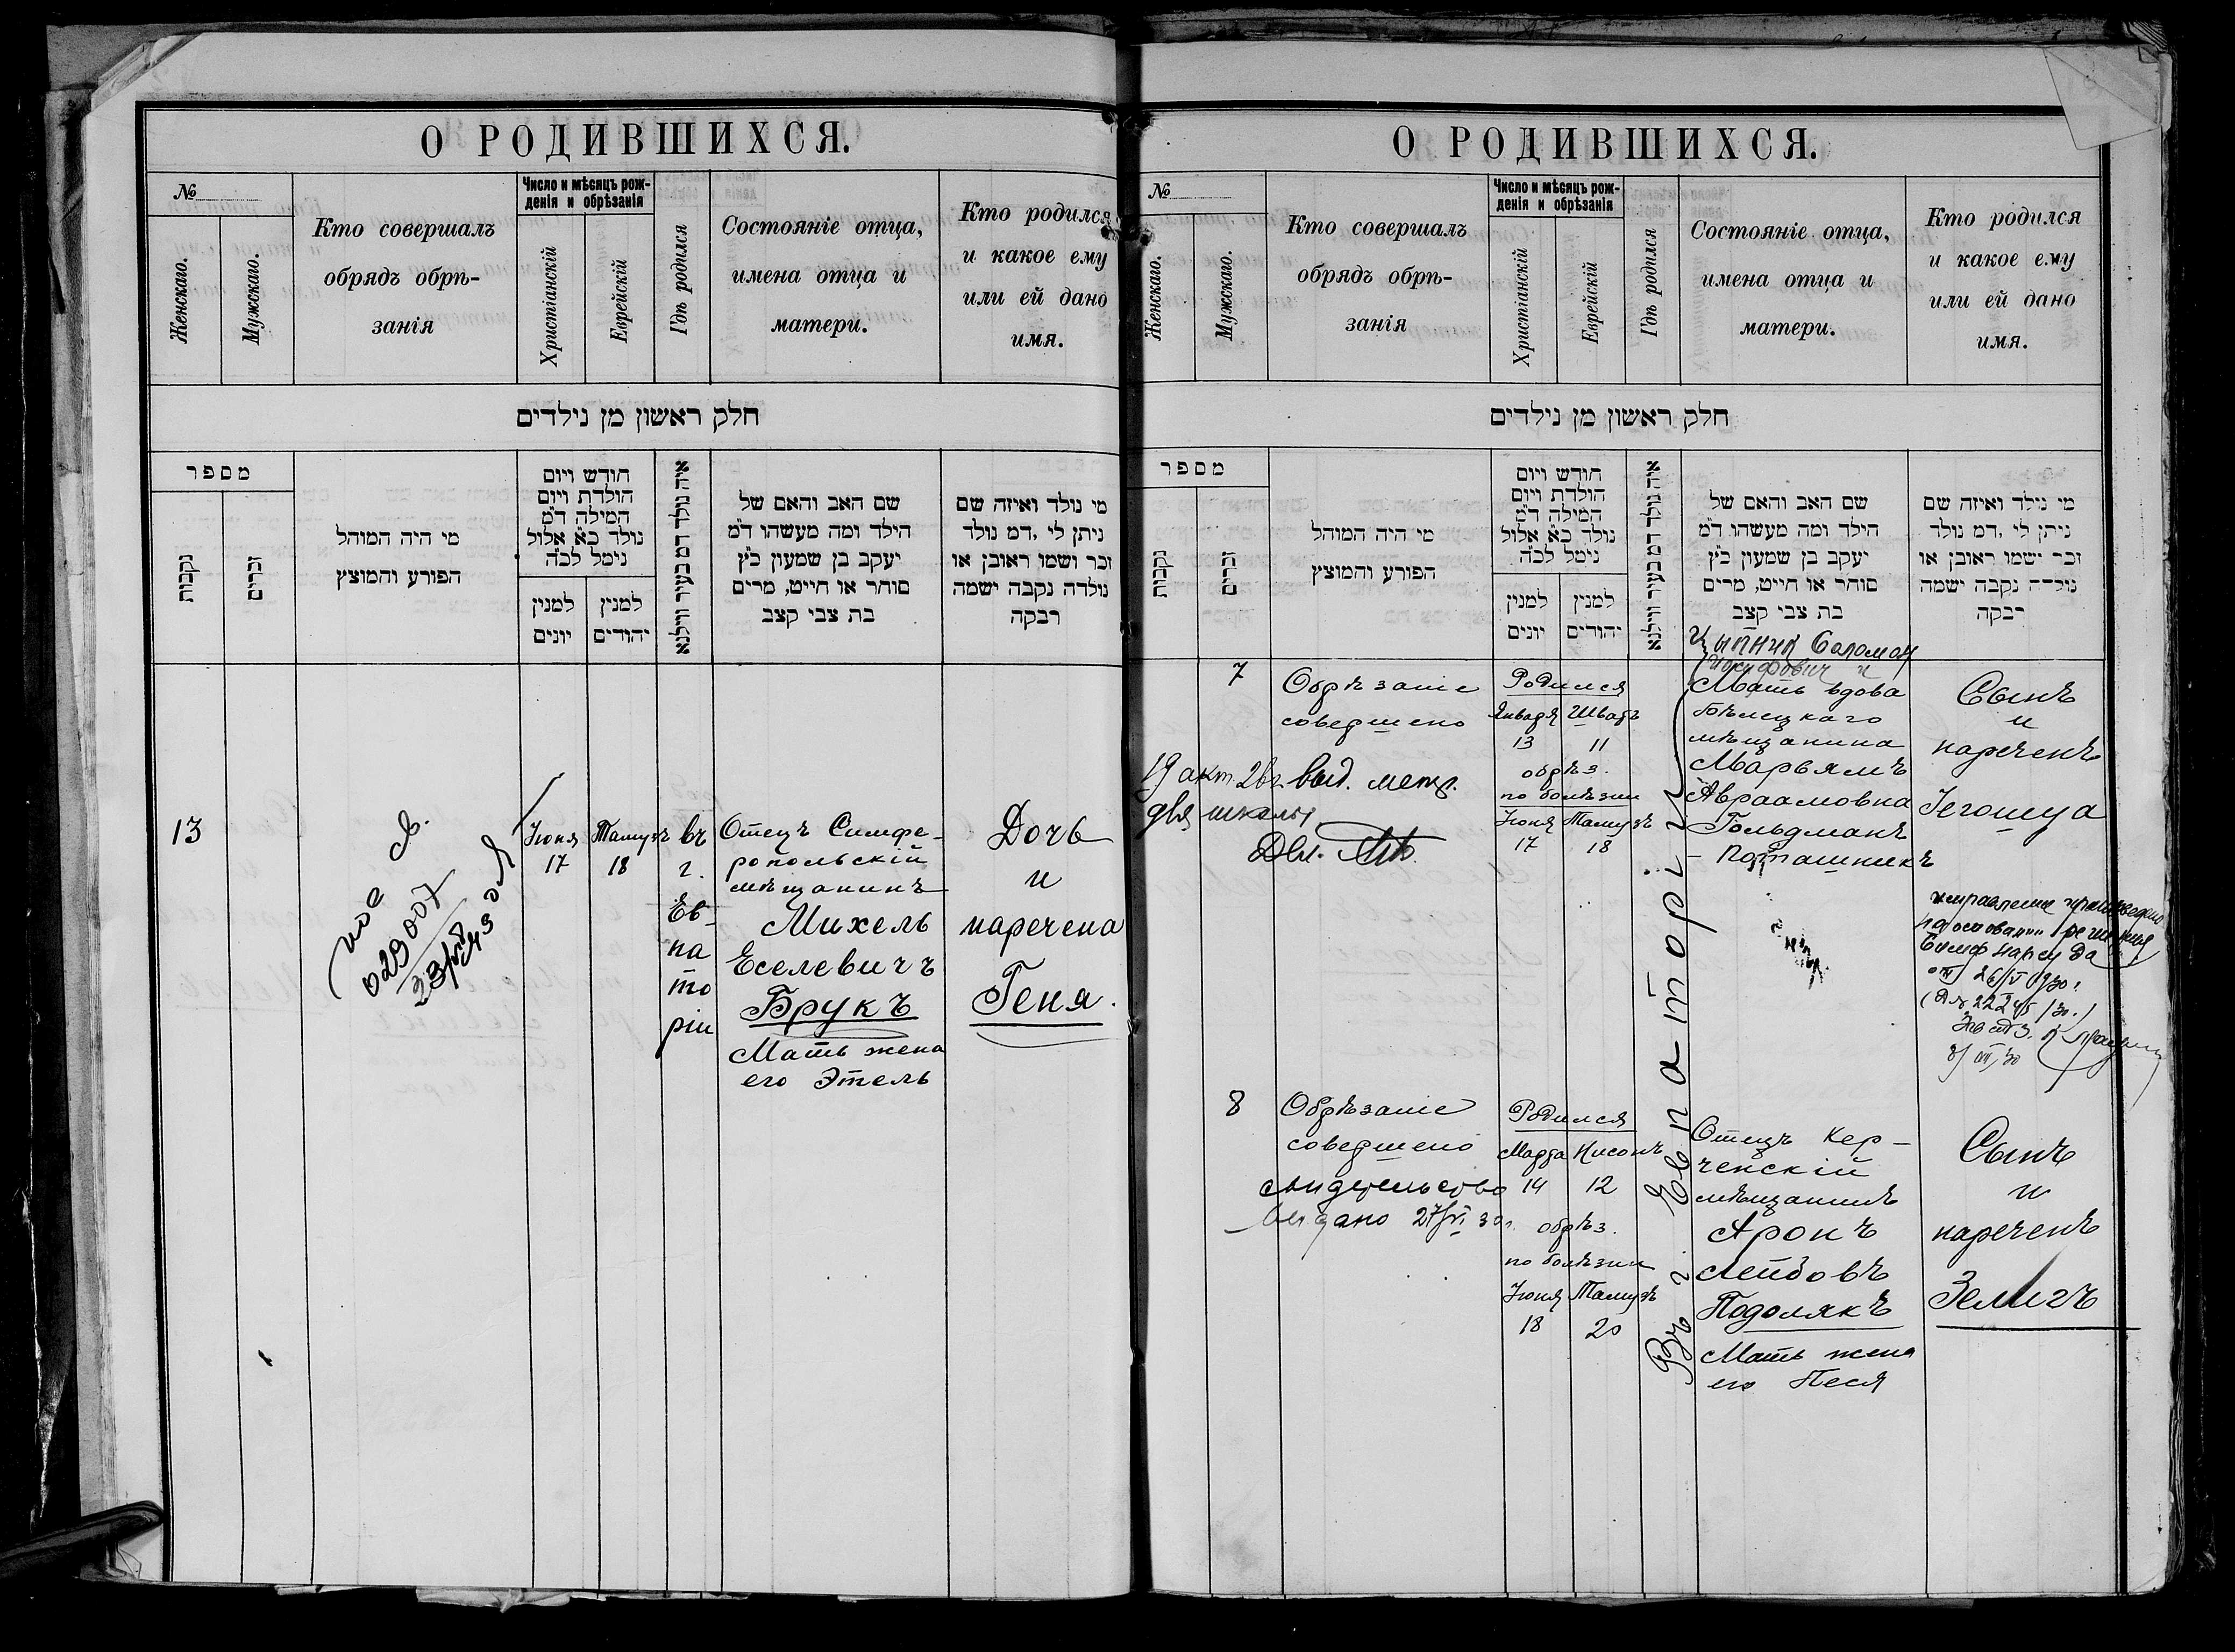 О РОДИВШИХСЯ.
№
Женскаго.
Мужскаго.
Кто совершалъ
обрядъ обрѣ-
занія
Число и мѣсяцъ рож-
денія и обрѣзанія
Христіанскій
Еврейскій
Гдѣ родился
Состояніе отца,
имена отца и
матери.
Кто родился
и какое ему
или ей дано
имя.
חלק ראשון מן נילדים
מספר
נקבות
זכרים
מי היה המוהל
הפורע והמוצץ
חודש ויום
הולדת ויום
המילה ד״מ
נולד כ״א אלול
נימל לכ״ה
למנין
יונים
למנין
יהודים
איה נולד דמ בעיר ווילנא
שם האב והאם של
הילד ומה מעשהו ד״מ
יעקב בן שמעון כ״ץ
סוחר או חייט, מרים
בת צבי קצב
מי נולד ואיזה שם
ניתן לי, דמ נולד
זכר ושמו ראובן או
נולדה נקבה ישמה
רבקה
13
023007
Іюня
17
Тамузъ
18
въ
г.
Ев-
па
то
ріи
Отецъ Симфе-
ропольскій
мѣщанинъ
Михель
Еселевичъ
Брукъ
Мать жена
его Этель
Дочь
и
наречена
Геня.
О РОДИВШИХСЯ.
№
Женскаго.
Мужскаго.
Кто совершалъ
обрядъ обрѣ-
занія
Число и мѣсяцъ рож-
денія и обрѣзанія
Христіанскій
Еврейскій
Гдѣ родился
Состояніе отца,
имена отца и
матери.
Кто родился
и какое ему
или ей дано
имя.
חלק ראשון מן נילדים
מספר
נקבות
זכרים
מי היה המוהל
הפורע והמוצץ
חודש ויום
הולדת ויום
המילה ד״מ
נולד כ״א אלול
נימל לכ״ה
למנין
יונים
למנין
יהודים
איה נולד דמ בעיר ווילנא
שם האב והאם של
הילד ומה מעשהו ד״מ
יעקב בן שמעון כ״ץ
סוחר או חייט, מרים
בת צבי קצב
מי נילד ואיזה שם
ניתן לי, דמ נולד
זכר ישמו ראובן או
נולדה נקבה ישמה
רבקה
7
Обрѣзаніе
совершено
19 окт. 26г. выд. метр.
для школы
Родился
Января
13
Шватъ
11
обрѣз.
по болѣзни
Іюня
17
Тамузъ
18
Въ г. Евпаторіи
Цыпник Соломон
Иосифович и
Мать вдова
бѣлицкаго
мѣщанина
Марьямъ
Авраамовна
Гольдманъ
- Поташникъ
Сынъ
и
нареченъ
Іегошуа
исправление произведено
на основании решения
Симф нарсуда
от 26/VI
8
Обрѣзаніе
совершено
свидетельство
выдано 27/VI 30г.
Родился
Марта
14
Нисонъ
12
обрѣз.
по болѣзни
Іюня
18
Тамузъ
20
Отецъ Кер-
ченскій
мѣщанинъ
Аронъ
Лейбовъ
Подолякъ
Мать жена
его Песя
Сынъ
и
нареченъ
Зелигъ